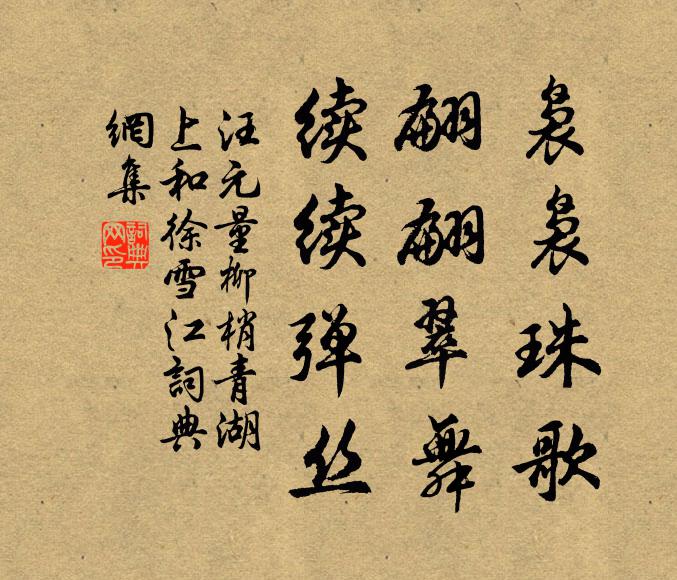 袅袅珠歌
翩翩翠舞
续续弹丝
汪元量柳梢青湖
上和徐雪江詞典
網集
詞典网印